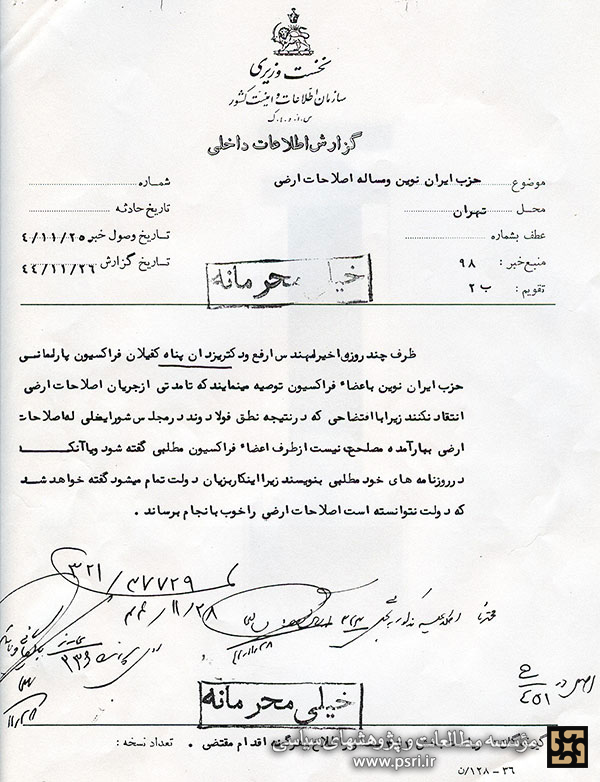 نخست وزیری
سازمان اطلاعات و امنیت کشور
س.ا.و.ا.ک
گزارش اطلاعات داخلی
موضوع حزب ایران نوین ومساله اصلاحات ارضی شماره
محل تهران تاریخ حادثه
عطف بشماره تاریخ وصول خبر ۴/۱۱/۲۵
منبع خبر : ۹۸ تاریخ گزارش ۴۴/۱۱/۲۶
تقویم : ب ۲
خیلی محرمانه
ظرف چند روزی اخیر مهندس ارفع ودکتر یزدان پناه کفیلان فراکسیون پارلمانی
حزب ایران نوین باعضاء فراکسیون توصیه مینمایند که تامدتی ازجریان اصلاحات ارضی
انتقاد نکنند زیرا با افتضاحی که درنتیجه نطق فولادوند درمجلس شورایملی له اصلاحات
ارضی ببار آمده مصلحت نیست ازطرف اعضاء فراکسیون مطلبی گفته شود ویا آنکه
در روزنامه های خود مطلبی بنویسند زیرا اینکار بزیان دولت تمام میشود گفته خواهد شد
که دولت نتوانسته است اصلاحات ارضی را خوب بانجام برساند .
۳۲۱/۳۷۷۲۹
۴۴/۱۱/۲۸
۳۳۶
اصل در ۴۵۱
خیلی محرمانه
مؤسسه مطالعات و پژوهشهای سیاسی
اقدام مقتضی . تعداد نسخه :
www.psri.ir
۳۶-۱۲۸/ن